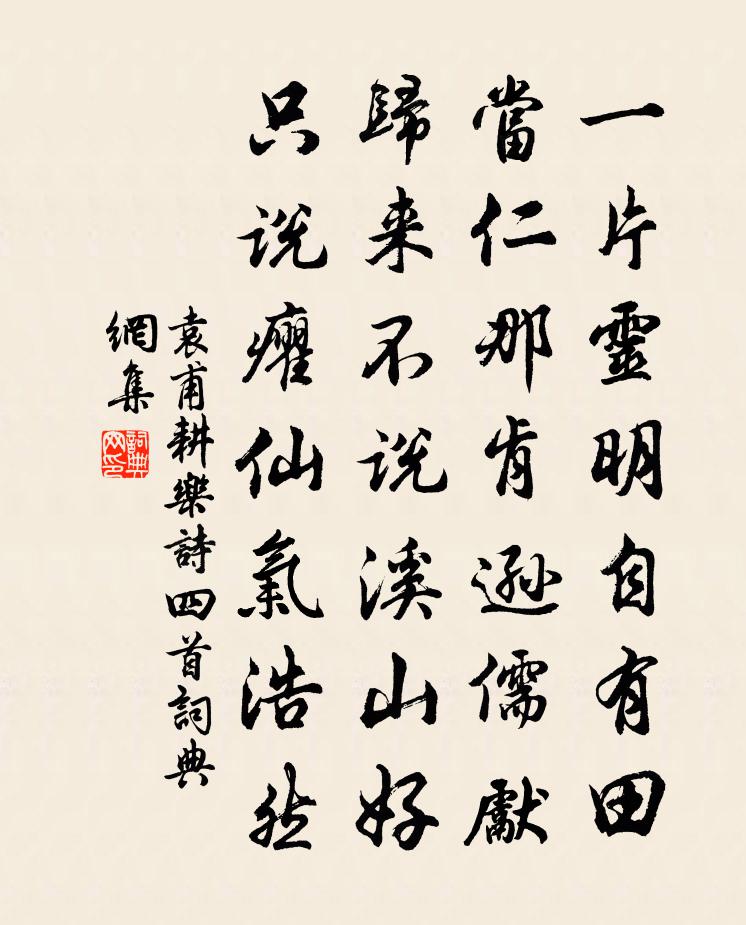 一片靈明自有田
當仁那肯遜儒獻
歸来不説溪山好
只説癯仙氣浩然
袁甫耕樂詩四首詞典
網集
詞典網印